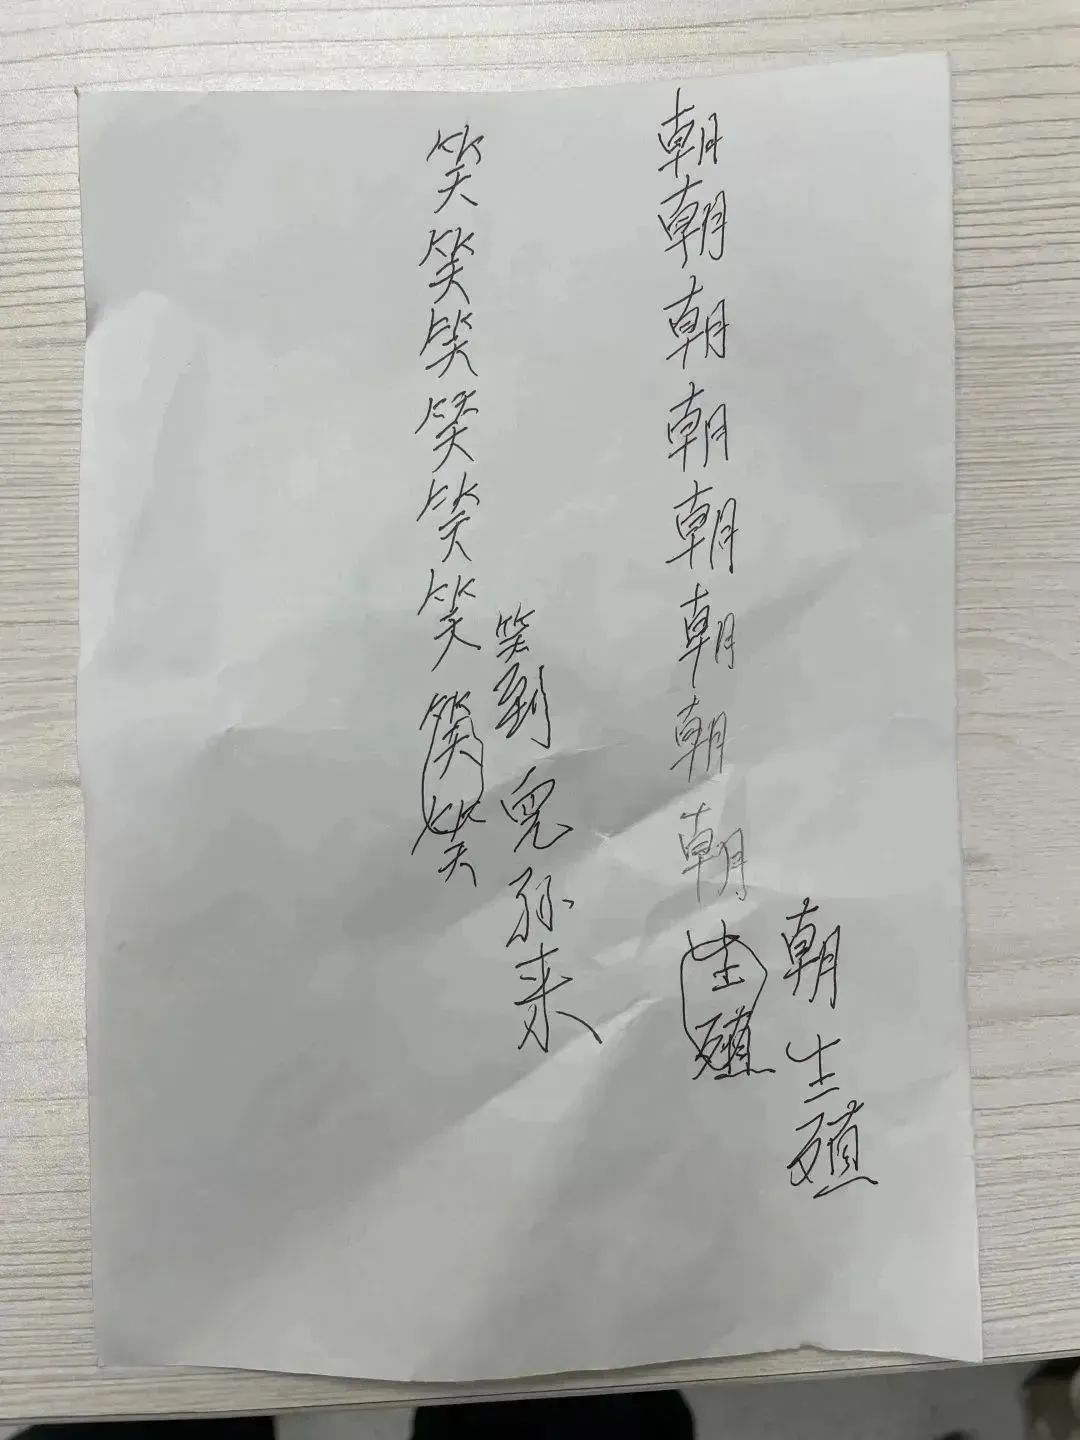 朝生殖
朝朝朝朝朝朝朝朝生殖
笑到兒孙来
笑笑笑笑笑笑笑笑